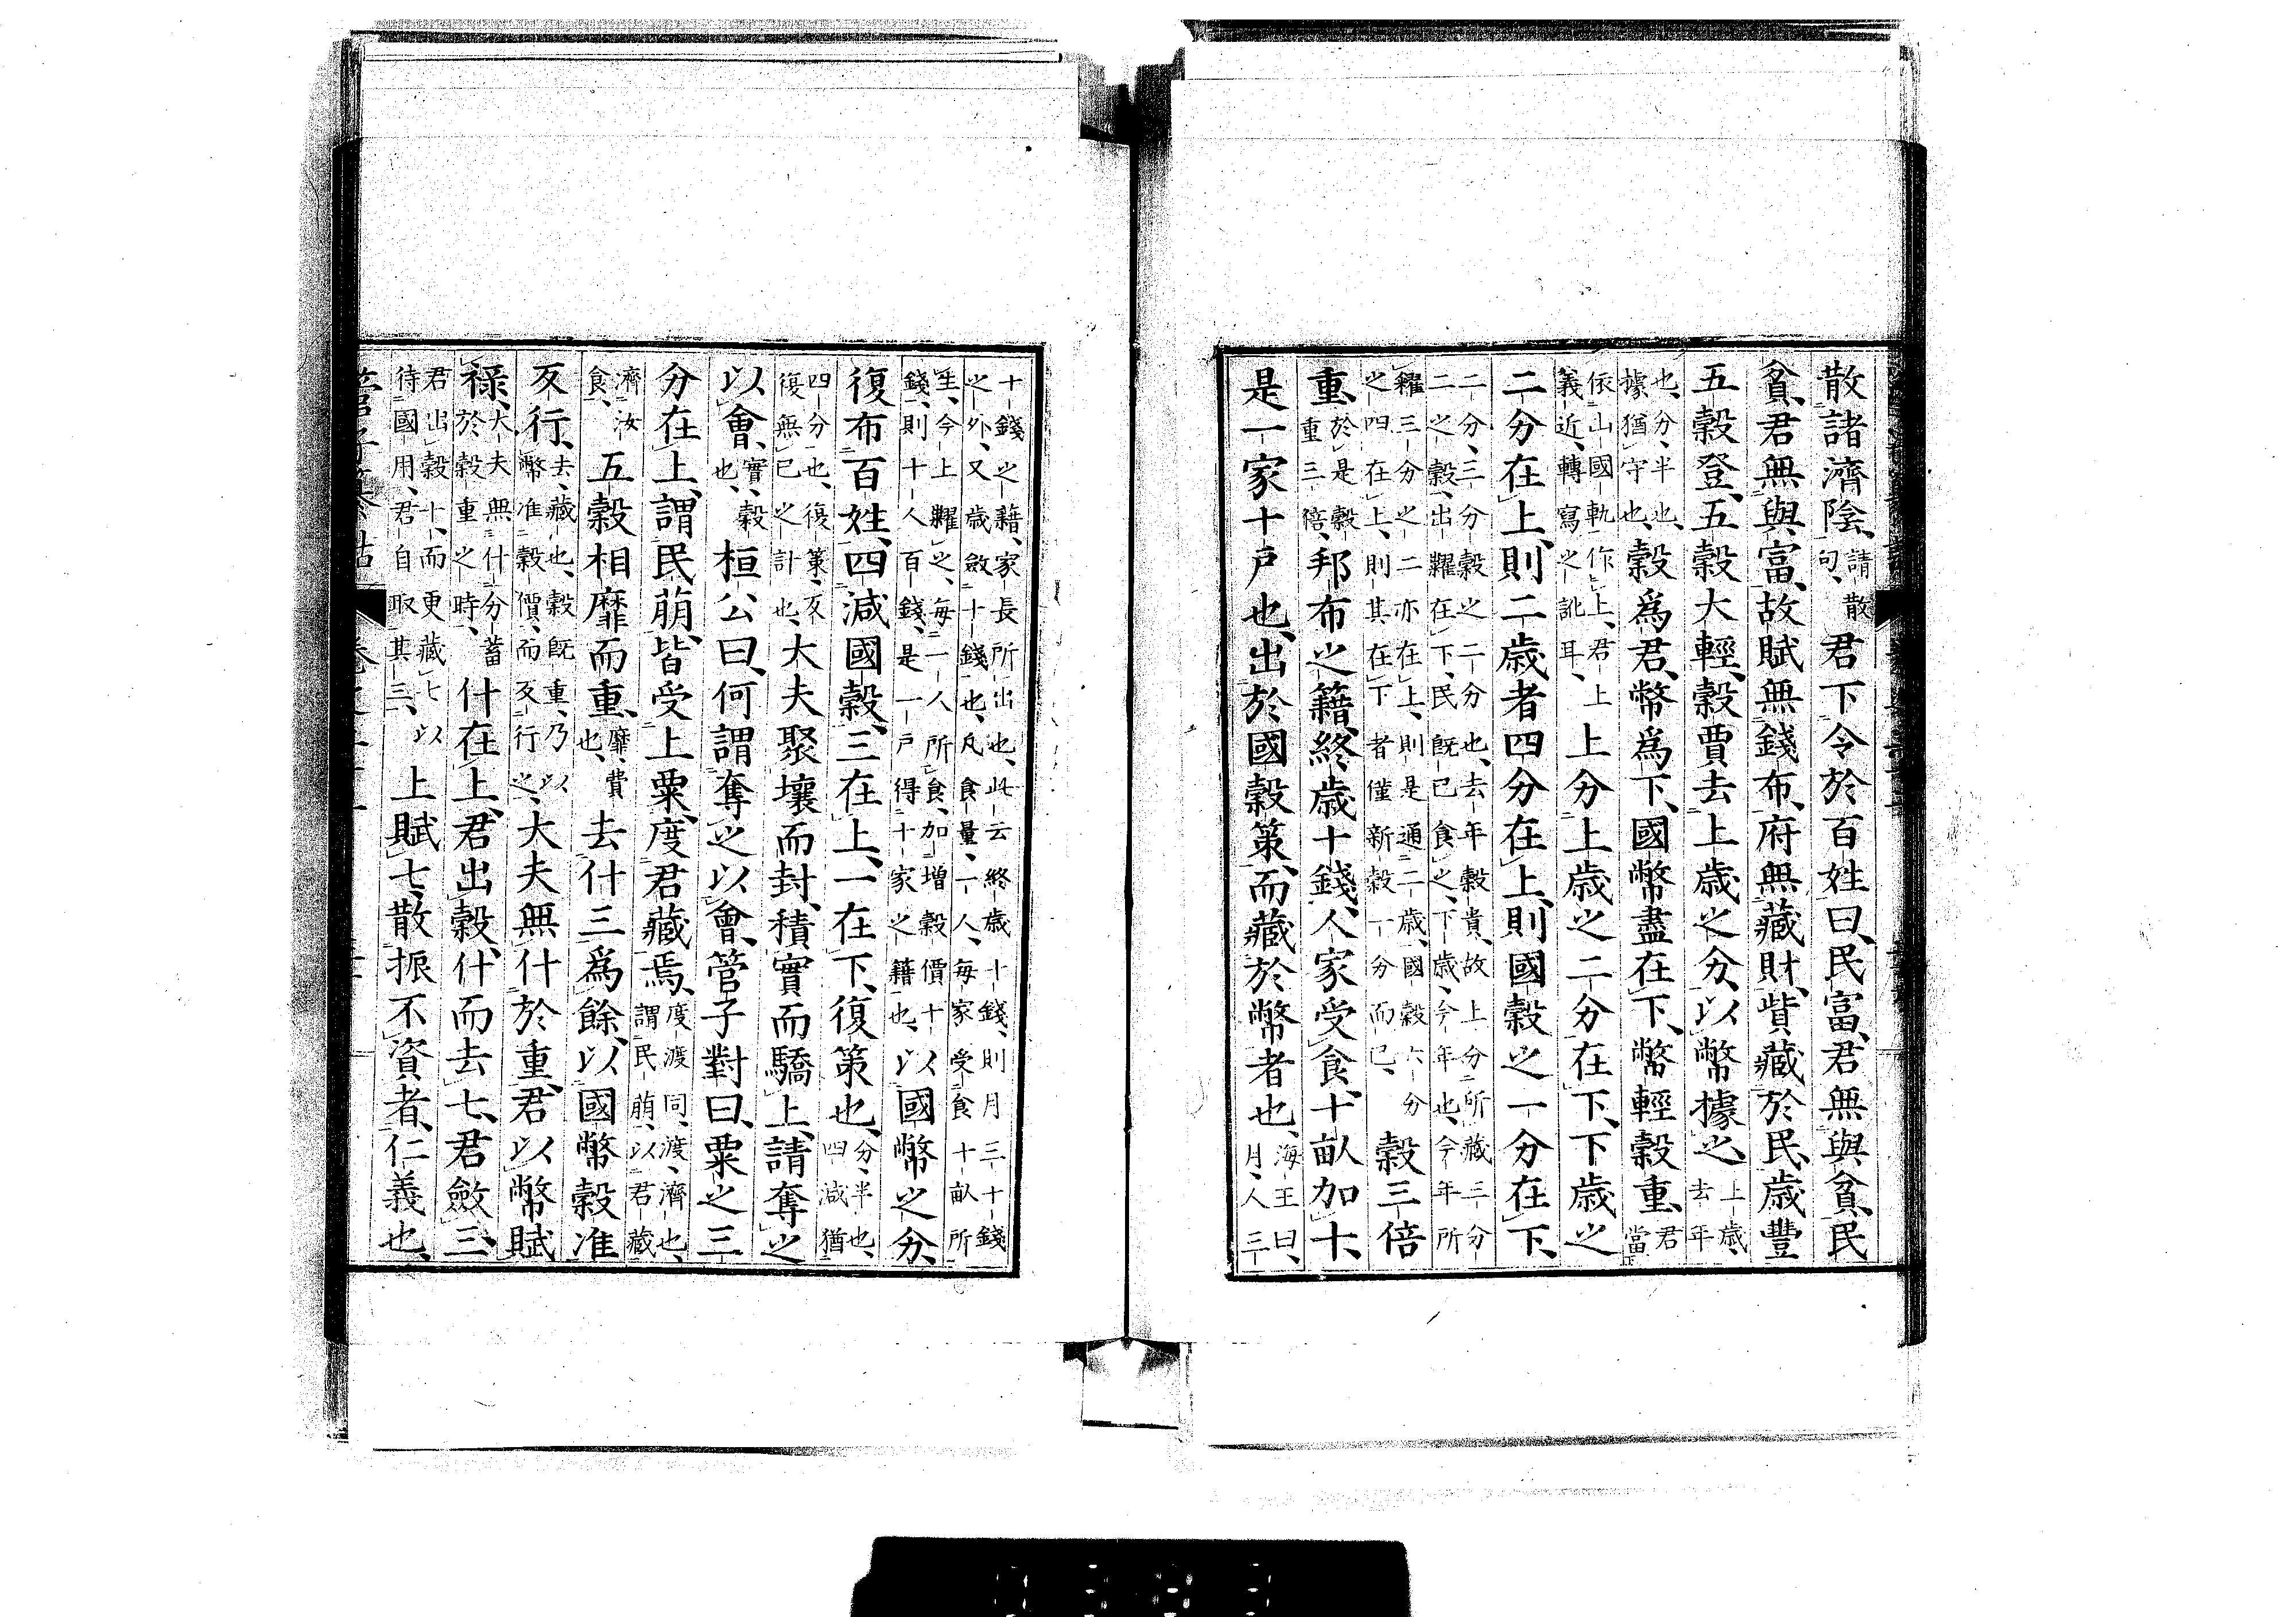 散諸濟陰、請散句、君下令於百姓曰、民富、君無與貧、民
貧、君無與富、故賦無錢布、府無藏財、貲藏於民、歲豐
五穀登、五穀大輕、穀賈去上歲之分、以幣據之、上歲、去年
也、分、半也、據猶守也、穀爲君、幣爲下、國幣盡在下、幣輕穀重、君當
依山國軌作上、君上義近、轉寫之訛耳、上分上歲之二分在下、下歲之
二分在上、則二歲者四分在上、則國穀之一分在下、
二分、三分穀之二分也、去年穀貴、故上分所藏三分
二之穀、出糶在下、民既已食之、下歲、今年也、今年所
糴三分之二亦在上、則是通二歲、國穀六分之四在上、則其在下者僅新穀一分而已、穀三倍
重、於是穀重三倍、邦布之籍、終歲十錢、人家受食、十畝加十、
是一家十戶也、出於國穀策、而藏於幣者也、海王曰、月、人三
十錢之籍、家長所出也、此云終歲十錢、則月三十錢
之外、又歲斂十錢也、凡食量、一人、每家受食十畝所
生、今上糶之、每一人所食、加增穀價十錢、則十人百錢、是一戶得十家之籍也、以國幣之分、
復布百姓、四減國穀、三在上、一在下、復策也、分、半也、四減猶
四分也、復策、反復無已之計也、大夫聚壤而封、積實而驕上、請奪之
以會、實、穀也、桓公曰、何謂奪之以會、管子對曰、粟之三
分在上、謂民萌皆受上粟、度君藏焉、度渡同、渡、濟也、謂民萌、以君藏
濟汝食、五穀相靡而重、靡、費也、去什三爲餘、以國幣穀准
反行、去、藏也、穀既重、乃以幣准穀價、而反行之、大夫無什於重、君以幣賦
祿、大夫無什分蓄於穀重之時、什在上、君出穀、什而去七、君斂三、
君出穀十、而更藏七以待國用、君自取其三、上賦七、散振不資者、仁義也、